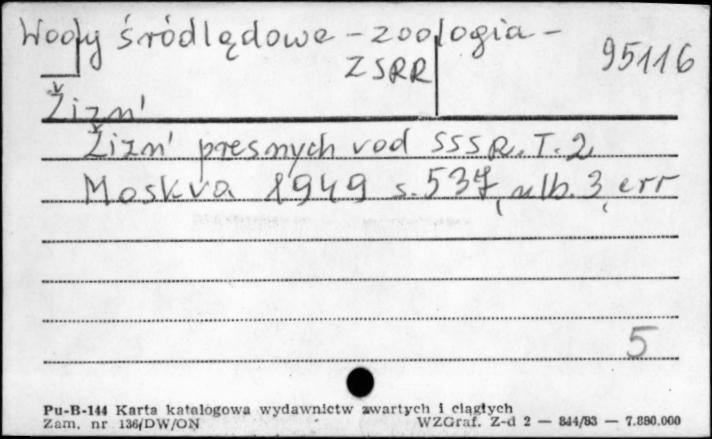 Wody śródlądowe – zoologia –
ZSRR
95116
Žizn'
Žizn' presnych vod SSSR. T. 2
Moskva 1949 s. 537, nlb. 3, err
5
Pu-B-144 Karta katalogowa wydawnictw zwartych i ciągłych
Zam. nr 136/DW/ON
WZGraf. Z-d 2 — 844/83 — 7.880.000